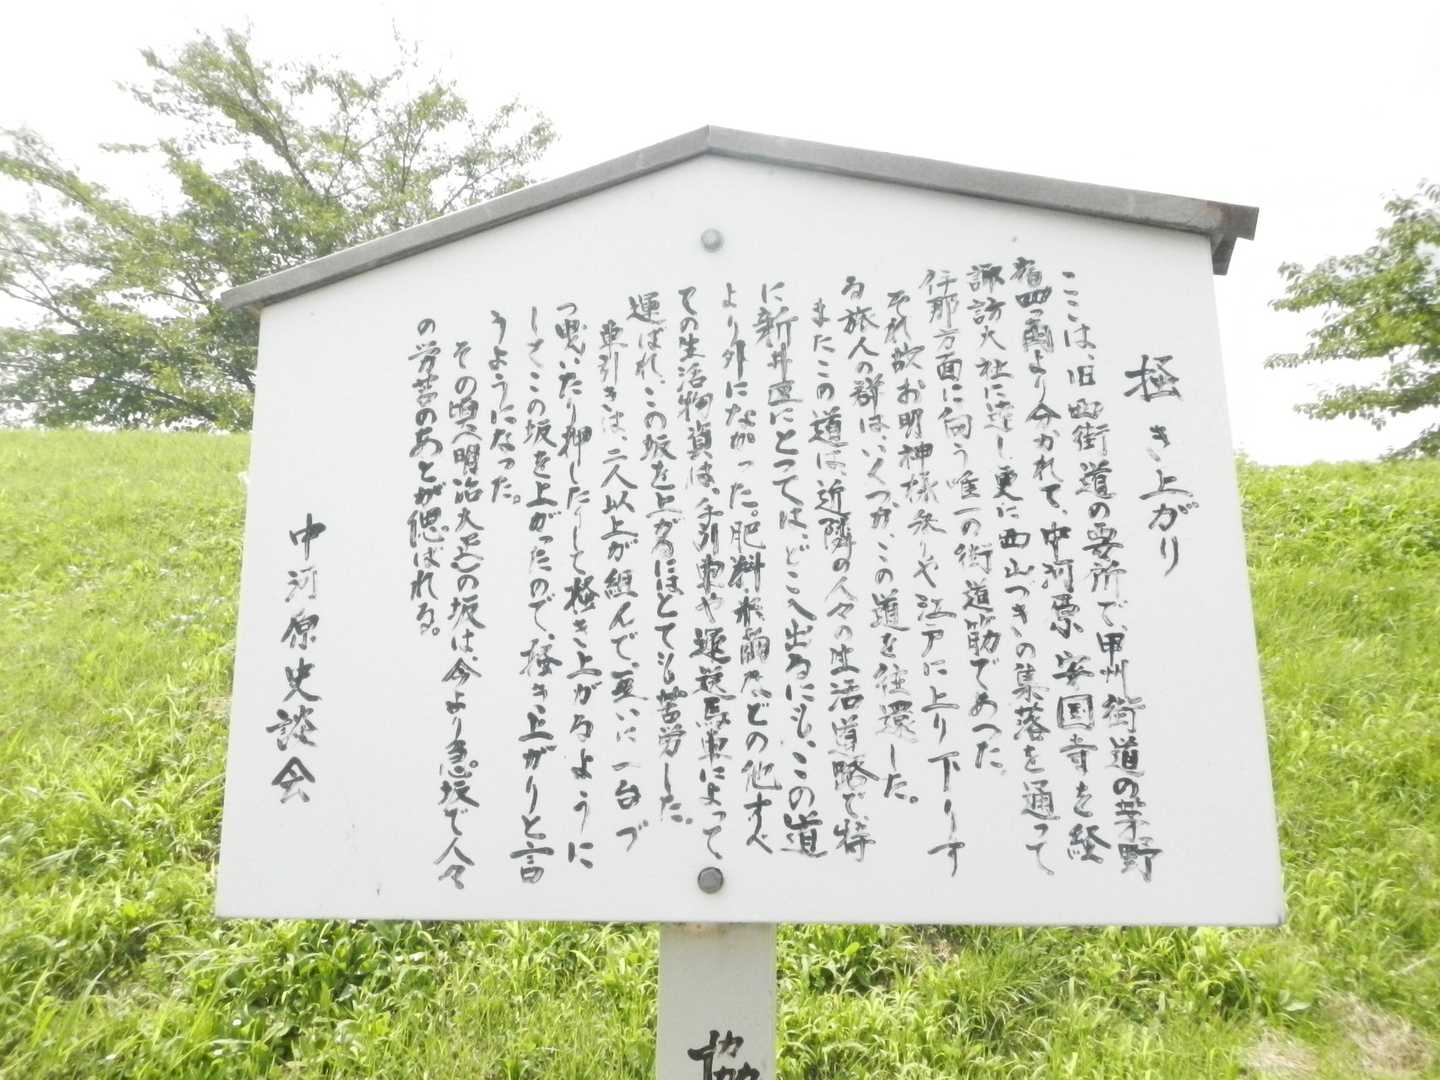 極き上がり
ここは、旧西街道の要所で、甲州街道の茅野
宿四つ角より分かれて、中河原 安国寺を経
諏訪大社に達し更に西山つきの集落を通って
伊那方面に向う唯一の街道筋であった。
それ故お明神様参りや江戸に上り下りす
る旅人の群は、いくつか、この道を往還した。
またこの道は、近隣の人々の生活道路で、特
に新井区にとっては、どこへ出るにも、この道
より外になかった。肥料・米・繭などの他すべ
ての生活物資は、手引車や運送馬車によって
運ばれ、この坂を上がるにはとても苦労した。
車引きは、二人以上が組んで、互いに一台づ
つ曳いたり押したりして極き上がるように
してこの坂を上がったので、極き上がりと言
うようになった。
その頃(明治大正)の坂は、今より急坂で人々
の労苦のあとが偲ばれる。
中河原史談会
協